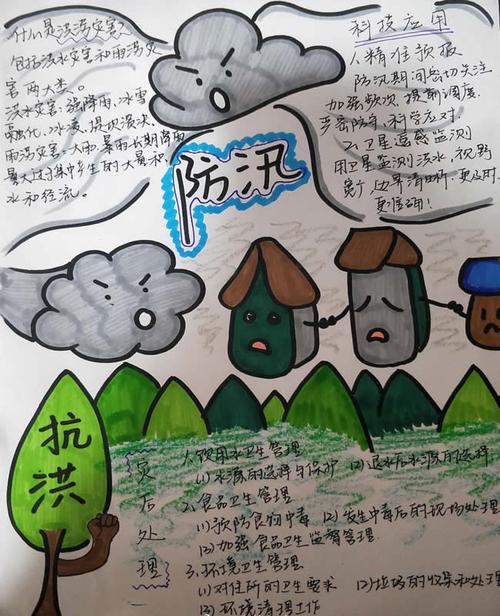 什么是洪涝灾害?
包括洪水灾害和雨涝灾
害两大类。
洪水灾害:强降雨、冰雪
融化、冰凌、堤坝溃决
雨涝灾害:大雨、暴雨长期降雨
量大过于集中产生的大量积
水和径流。
科技应用
1.精准预报
防汛期间密切关注
加强频次,提前调度,
严密防守,科学应对
2.卫星遥感监测
用卫星监测洪水,视野
宽广、边界清晰,更及时、
更准确!
防汛
抗洪
灾后处理
1.饮用水卫生管理
(1)水源的选择与保护 (2)退水后水源的选择
2.食品卫生管理
(1)预防食物中毒 (2)发生中毒后的现场处理
(3)加强食品卫生监督管理
3.环境卫生管理
(1)对住所的卫生要求 (2)垃圾的收集和处理
(3)环境清理工作